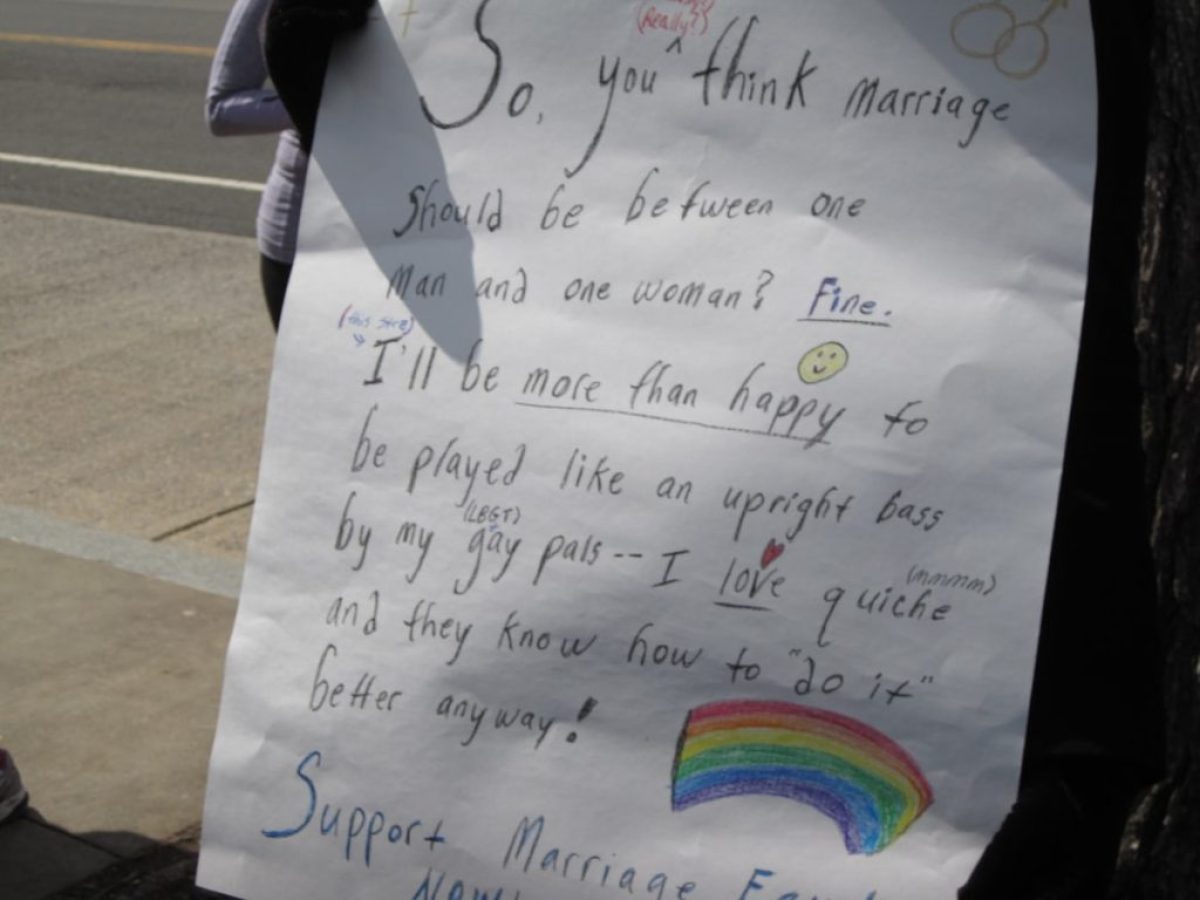 (Really?)
So, you ^ think marriage
should be between one
man and one woman? Fine.
(this stre)
I'll be more than happy to
be played like an upright bass
(LBGT)
by my gay pals -- I love quiche
(mmmm)
and they know how to "do it"
better anyway!
Support Marriage
Now